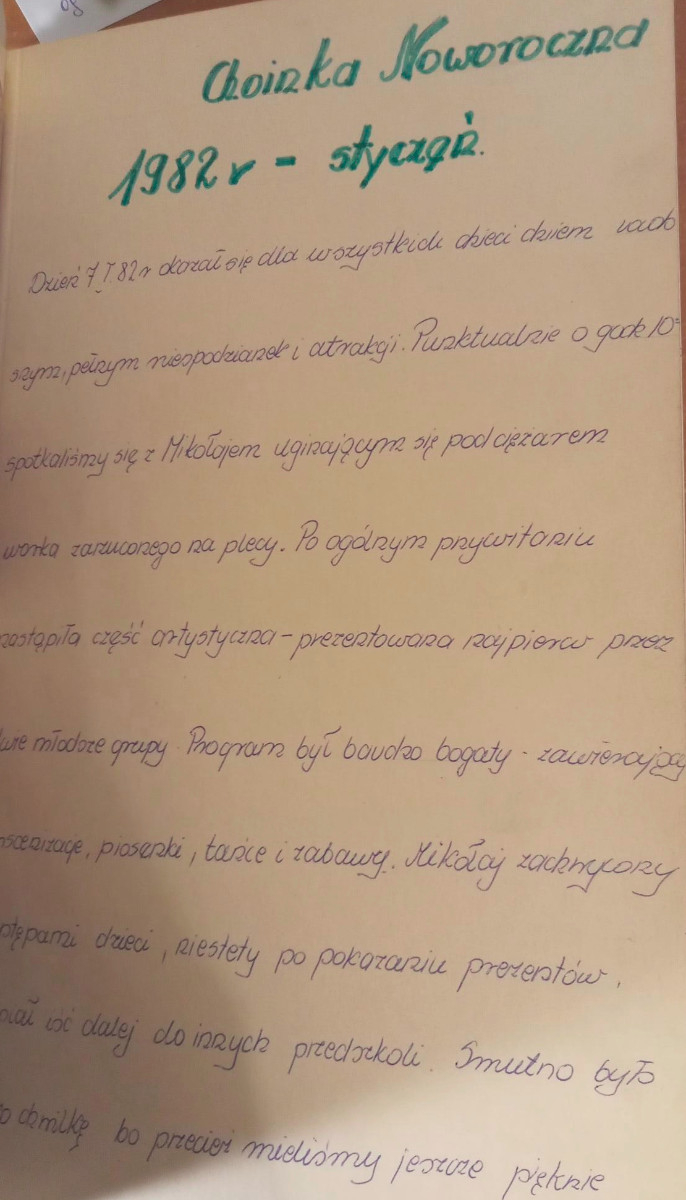 Choinka Noworoczna
1982 r - styczeń.
Dzień 7.I.82r okazał się dla wszystkich dzieci dniem rado
snym, pełnym niespodzianek i atrakcji. Punktualnie o godz 10
spotkaliśmy się z Mikołajem uginającym się pod ciężarem
worka zarzuconego na plecy. Po ogólnym przywitaniu
nastąpiła część artystyczna - prezentowana najpierw przez
dwie młodsze grupy. Program był bardzo bogaty - zawierający
inscenizacje, piosenki, tańce i zabawy. Mikołaj zachwycony
stępami dzieci, niestety po pokazaniu prezentów,
iał iść dalej do innych przedszkoli. Smutno było
o chwilkę bo przecież mieliśmy jeszcze pięknie